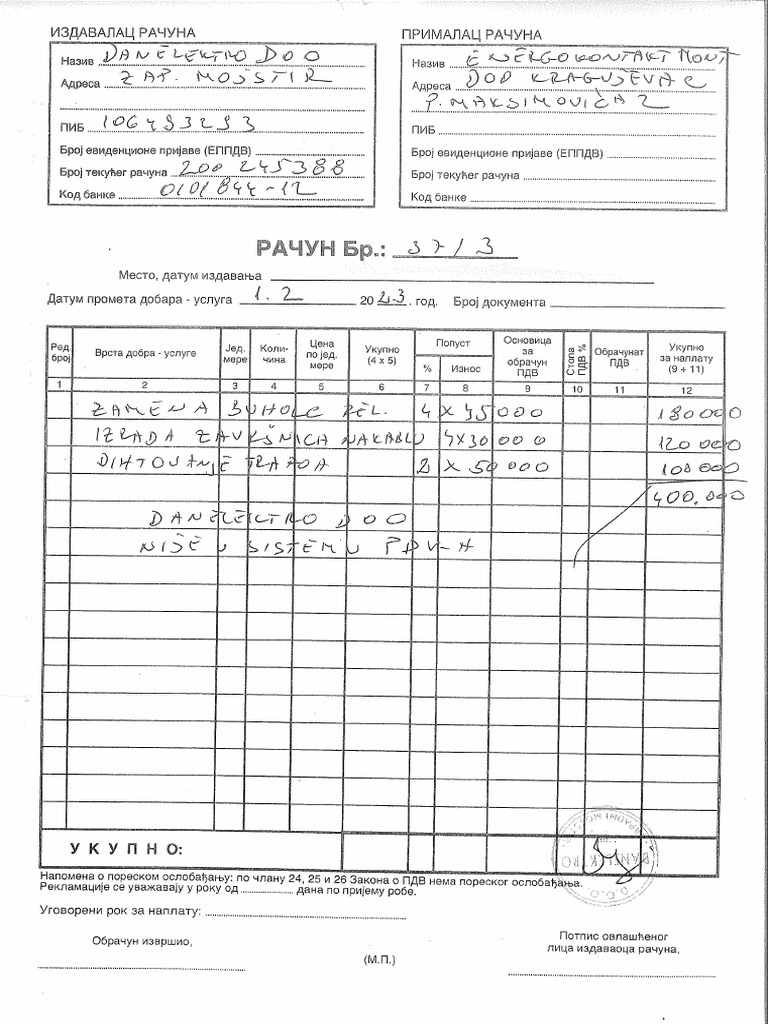 ИЗДАВАЛАЦ РАЧУНА
Назив DANELEKTRO DOO
Адреса ZAP. MOJSTIR
ПИБ 106493293
Број евиденционе пријаве (ЕППДВ)
Број текућег рачуна 200 245388
Код банке 0101844-12
ПРИМАЛАЦ РАЧУНА
Назив ENERGOKONTAKT MONT
Адреса DOO KRAGUJEVAC
P. MAKSIMOVIĆA 2
ПИБ
Број евиденционе пријаве (ЕППДВ)
Број текућег рачуна
Код банке
РАЧУН Бр.: 37/3
Место, датум издавања
Датум промета добара - услуга 1.2 2023. год. Број документа
Ред. број Врста добра - услуге Јед. мере Коли-чина Цена по јед. мере Укупно (4 x 5) Попуст % Износ Основица за обрачун ПДВ Стопа ПДВ % Обрачунат ПДВ Укупно за наплату (9 ÷ 11)
1 2 3 4 5 6 7 8 9 10 11 12
ZAMENA BUHOLC REL. 4 X 45000 180000
IZRADA ZAVRŠNICA NA KABLU 4X30000 120000
DIHTOVANJE TRAFOA 2 X 50000 100000
400.000
DANELEKTRO DOO
NIJE U SISTEMU PDV-A
УКУПНО:
Напомена о пореском ослобађању: по члану 24, 25 и 26 Закона о ПДВ нема пореског ослобађања.
Рекламације се уважавају у року од дана по пријему робе.
Уговорени рок за наплату:
Обрачун извршио,
(М.П.)
Потпис овлашћеног
лица издаваоца рачуна,
DANELEKTRO
D.O.O.